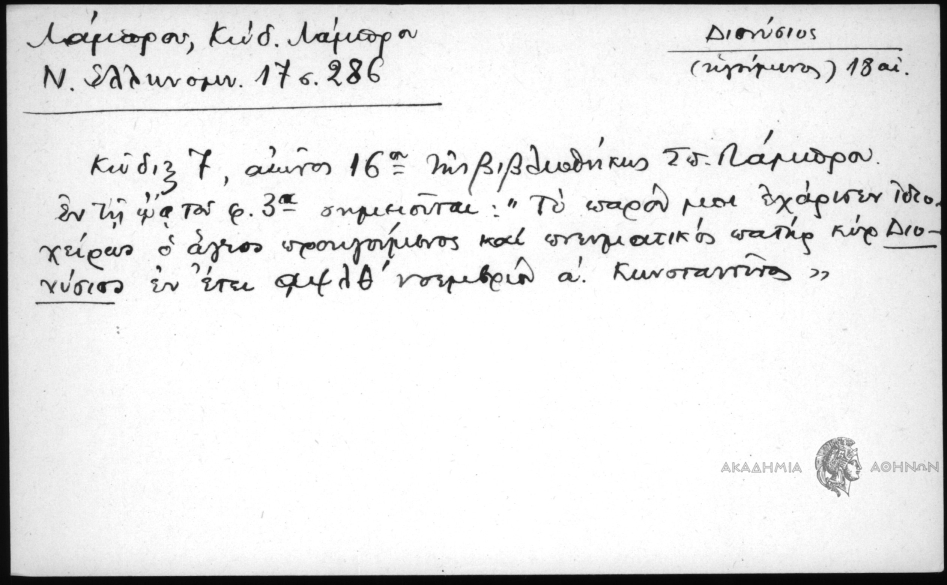 Λάμπρου, Κώδ. Λάμπρου
Ν. Ελληνομν. 17 σ. 286
Διονύσιος
(ηγούμενος) 18 αι.
Κώδιξ 7, αἰῶνος 16ου τῆς βιβλιοθήκης Σπ. Λάμπρου.
ἐν τῇ ᾤᾳ τοῦ φ. 3α σημειοῦται: "Τὸ παρὸν μοι ἐχάρισεν ἰδιο-
χείρως ὁ ἅγιος προηγούμενος καὶ πνευματικὸς πατὴρ κὺρ Διο-
νύσιος ἐν ἔτει αψλθ' νοεμβρίου α'. Κωνσταντῖνος"
ΑΚΑΔΗΜΙΑ ΑΘΗΝΩΝ